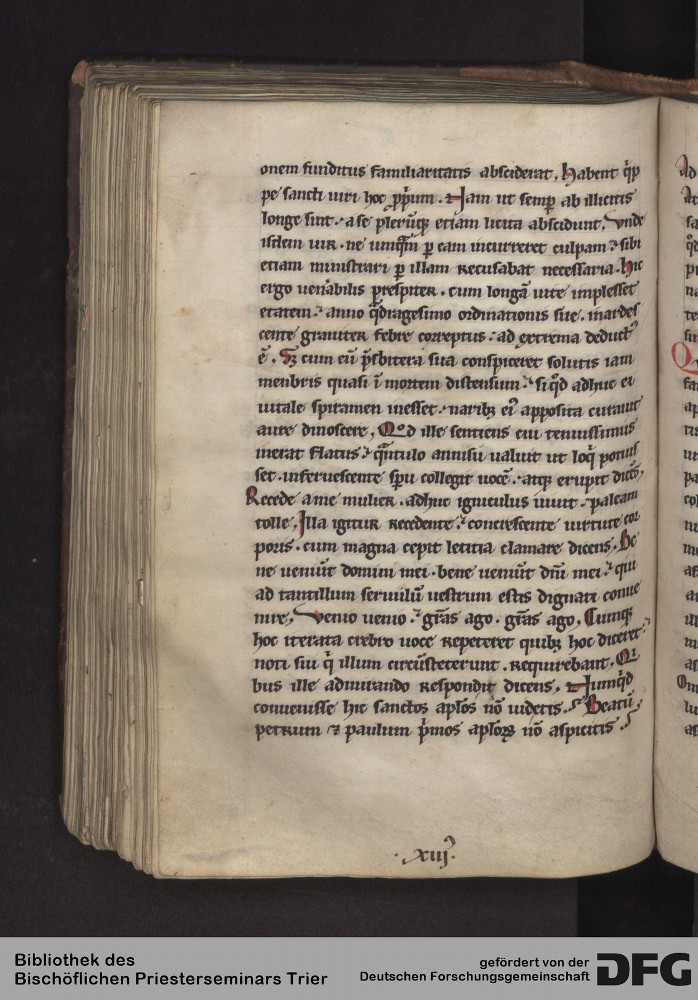 onem funditus familiaritatis absciderat. Habent q̈p
pe sancti uiri hoc ꝓpum. Nam ut semp ab illicitis
longe sint. a se plerūq; etiam licita abscidunt. Vnde
isdem uir. ne umq̄m p eam incurreret culpam. sibi
etiam ministrari p illam recusabat necessaria. Hic
ergo uen̄abilis prespiter. cum longā uite implesset
etatem. anno q̈dragesimo ordinationis sue. inardes
cente grauiter febre correptus. ad extrema deduct᷒
ē. Sꝫ cum eū p̄sbitera sua conspiceret solutis iam
menbris quasi ī mortem distensum. si q̊d adhuc ei
uitale spiramen inesset. naribꝫ ei᷒ apposita curauit
aure dinoscere. Qod ille sentiens cui tenuissimus
inerat flatus. q̄ntulo annisu ualuit ut loq̇ potuis
set. inferuescente spu collegit uocē. atq; erupit dicēs.
Recede a me mulier. adhuc igniculus uiuit. paleam
tolle. Illa igitur recedente. concrescente uirtute cor
poris. cum magna cepit letitia clamare dicens. Be
ne ueniūt domini mei. bene ueniūt dn̄i mei. qui
ad tantillum seruilū uestrum estis dignati conue
nire. Venio uenio. gr̄as ago. gr̄as ago. Cumq;
hoc iterata crebro uoce repeteret quibꝫ hoc diceret.
noti sui q̇ illum circūsteterunt. requirebant. Qi
bus ille admirando respondit dicens. Numq̇d
conuenisse hic sanctos apl̄os nō uidetis. Beatū
petrum ⁊ paulum p̍mos apl̄oꝝ nō aspicitis.
.xiij᷒.
Bibliothek des
Bischöflichen Priesterseminars Trier
gefördert von der
Deutschen Forschungsgemeinschaft
DFG